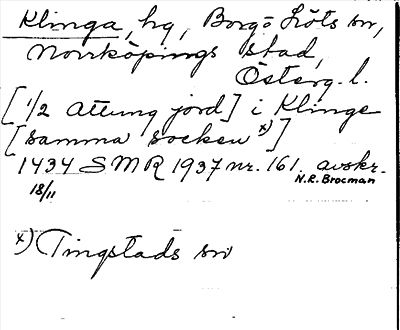 Klinga, hg, Borgs Löts sn,
Norrköpings stad,
Österg. l.
[1/2 attung jord] i Klinge
[samma socken x)]
1434 SMR 1937 nr. 161. avskr.
18/11 N.R. Brocman
x) Tingstads sn